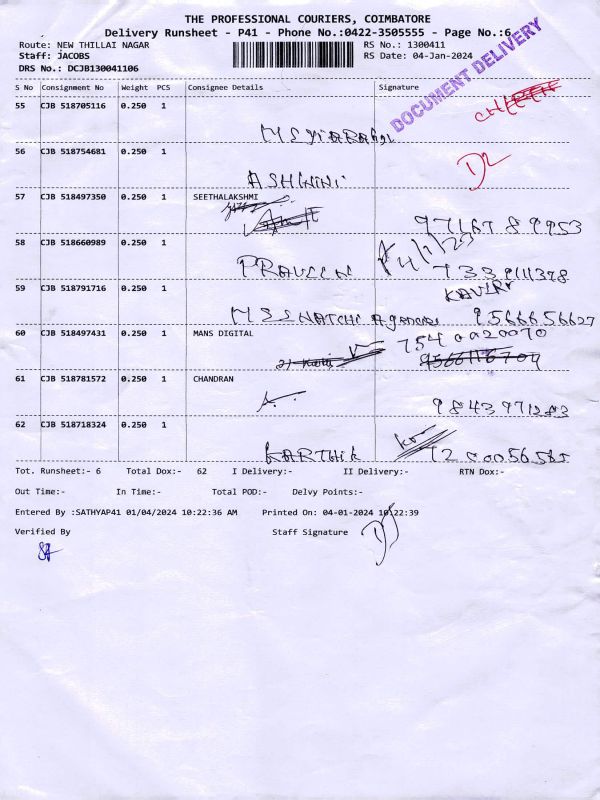 THE PROFESSIONAL COURIERS, COIMBATORE
Delivery Runsheet - P41 - Phone No.:0422-3505555 - Page No.:6
Route: NEW THILLAI NAGAR
RS No.: 1300411
Staff: JACOBS
RS Date: 04-Jan-2024
DRS No.: DCJB130041106
DOCUMENT DELIVERY
S No Consignment No Weight PCS Consignee Details Signature
55 CJB 518705116 0.250 1
56 CJB 518754681 0.250 1
ASHWINI
57 CJB 518497350 0.250 1 SEETHALAKSHMI
97167 89953
58 CJB 518660989 0.250 1
PRAVEEN
59 CJB 518791716 0.250 1
9566656627
60 CJB 518497431 0.250 1 MANS DIGITAL
7540020070
61 CJB 518781572 0.250 1 CHANDRAN
9843971283
62 CJB 518718324 0.250 1
KARTHIK
Tot. Runsheet:- 6 Total Dox:- 62 I Delivery:- II Delivery:- RTN Dox:-
Out Time:- In Time:- Total POD:- Delvy Points:-
Entered By :SATHYAP41 01/04/2024 10:22:36 AM Printed On: 04-01-2024 10:22:39
Verified By Staff Signature